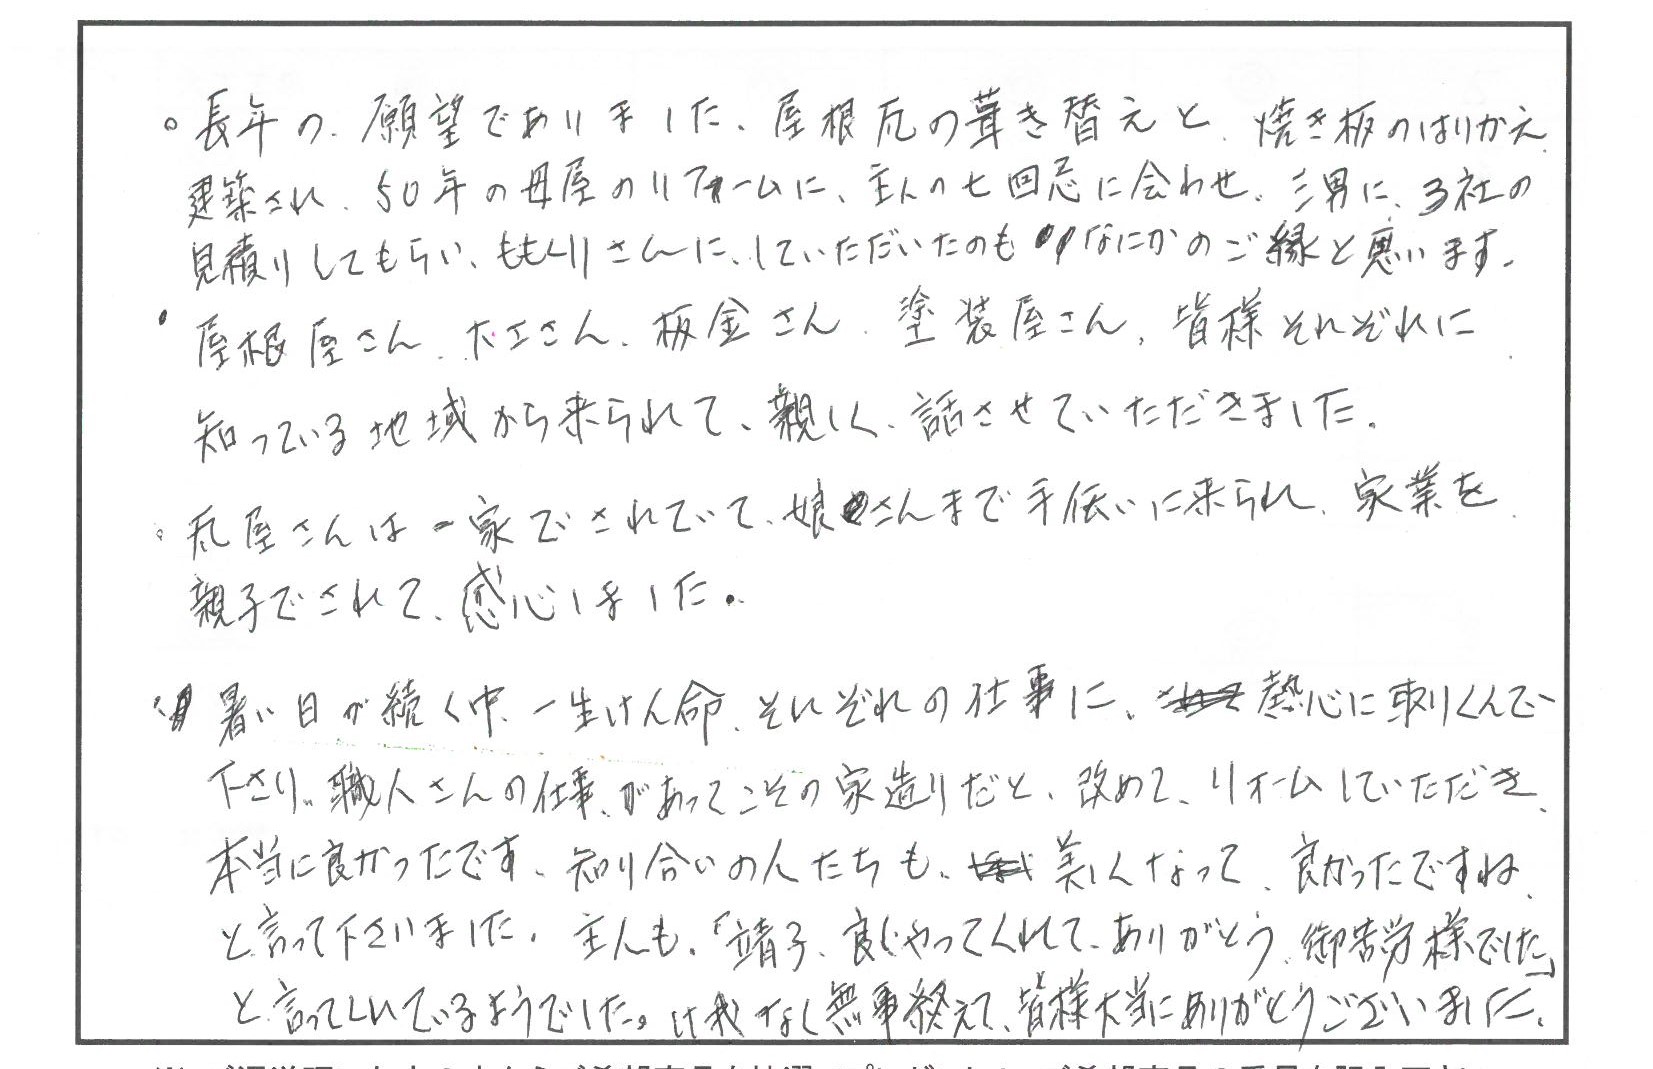 。長年の、願望でありました、屋根瓦の葺き替えと、焼き板のはりかえ、
建築され、50年の母屋のリフォームに、主人の七回忌に会わせ、三男に、3社の
見積りしてもらい、ももくりさんに、していただいたのも なにかのご縁と思います。
・屋根屋さん、大工さん、板金さん、塗装屋さん、皆様それぞれに
知っている地域から来られて、親しく、話させていただきました。
。瓦屋さんは一家でされていて、娘さんまで手伝いに来られ、家業を
親子でされて、感心しました。
暑い日が続く中、一生けん命、それぞれの仕事に、熱心に取りくんで
下さり、職人さんの仕事、があってこその家造りだと、改めて、リォームしていただき、
本当に良かったです、知り合いの人たちも、美しくなって、良かったですね、
と言って下さいました。主人も、「靖子、良くやってくれて、ありがとう、御苦労様でした」
と言ってくれているようでした。けがなく無事終えて、皆様大当にありがとうございました。